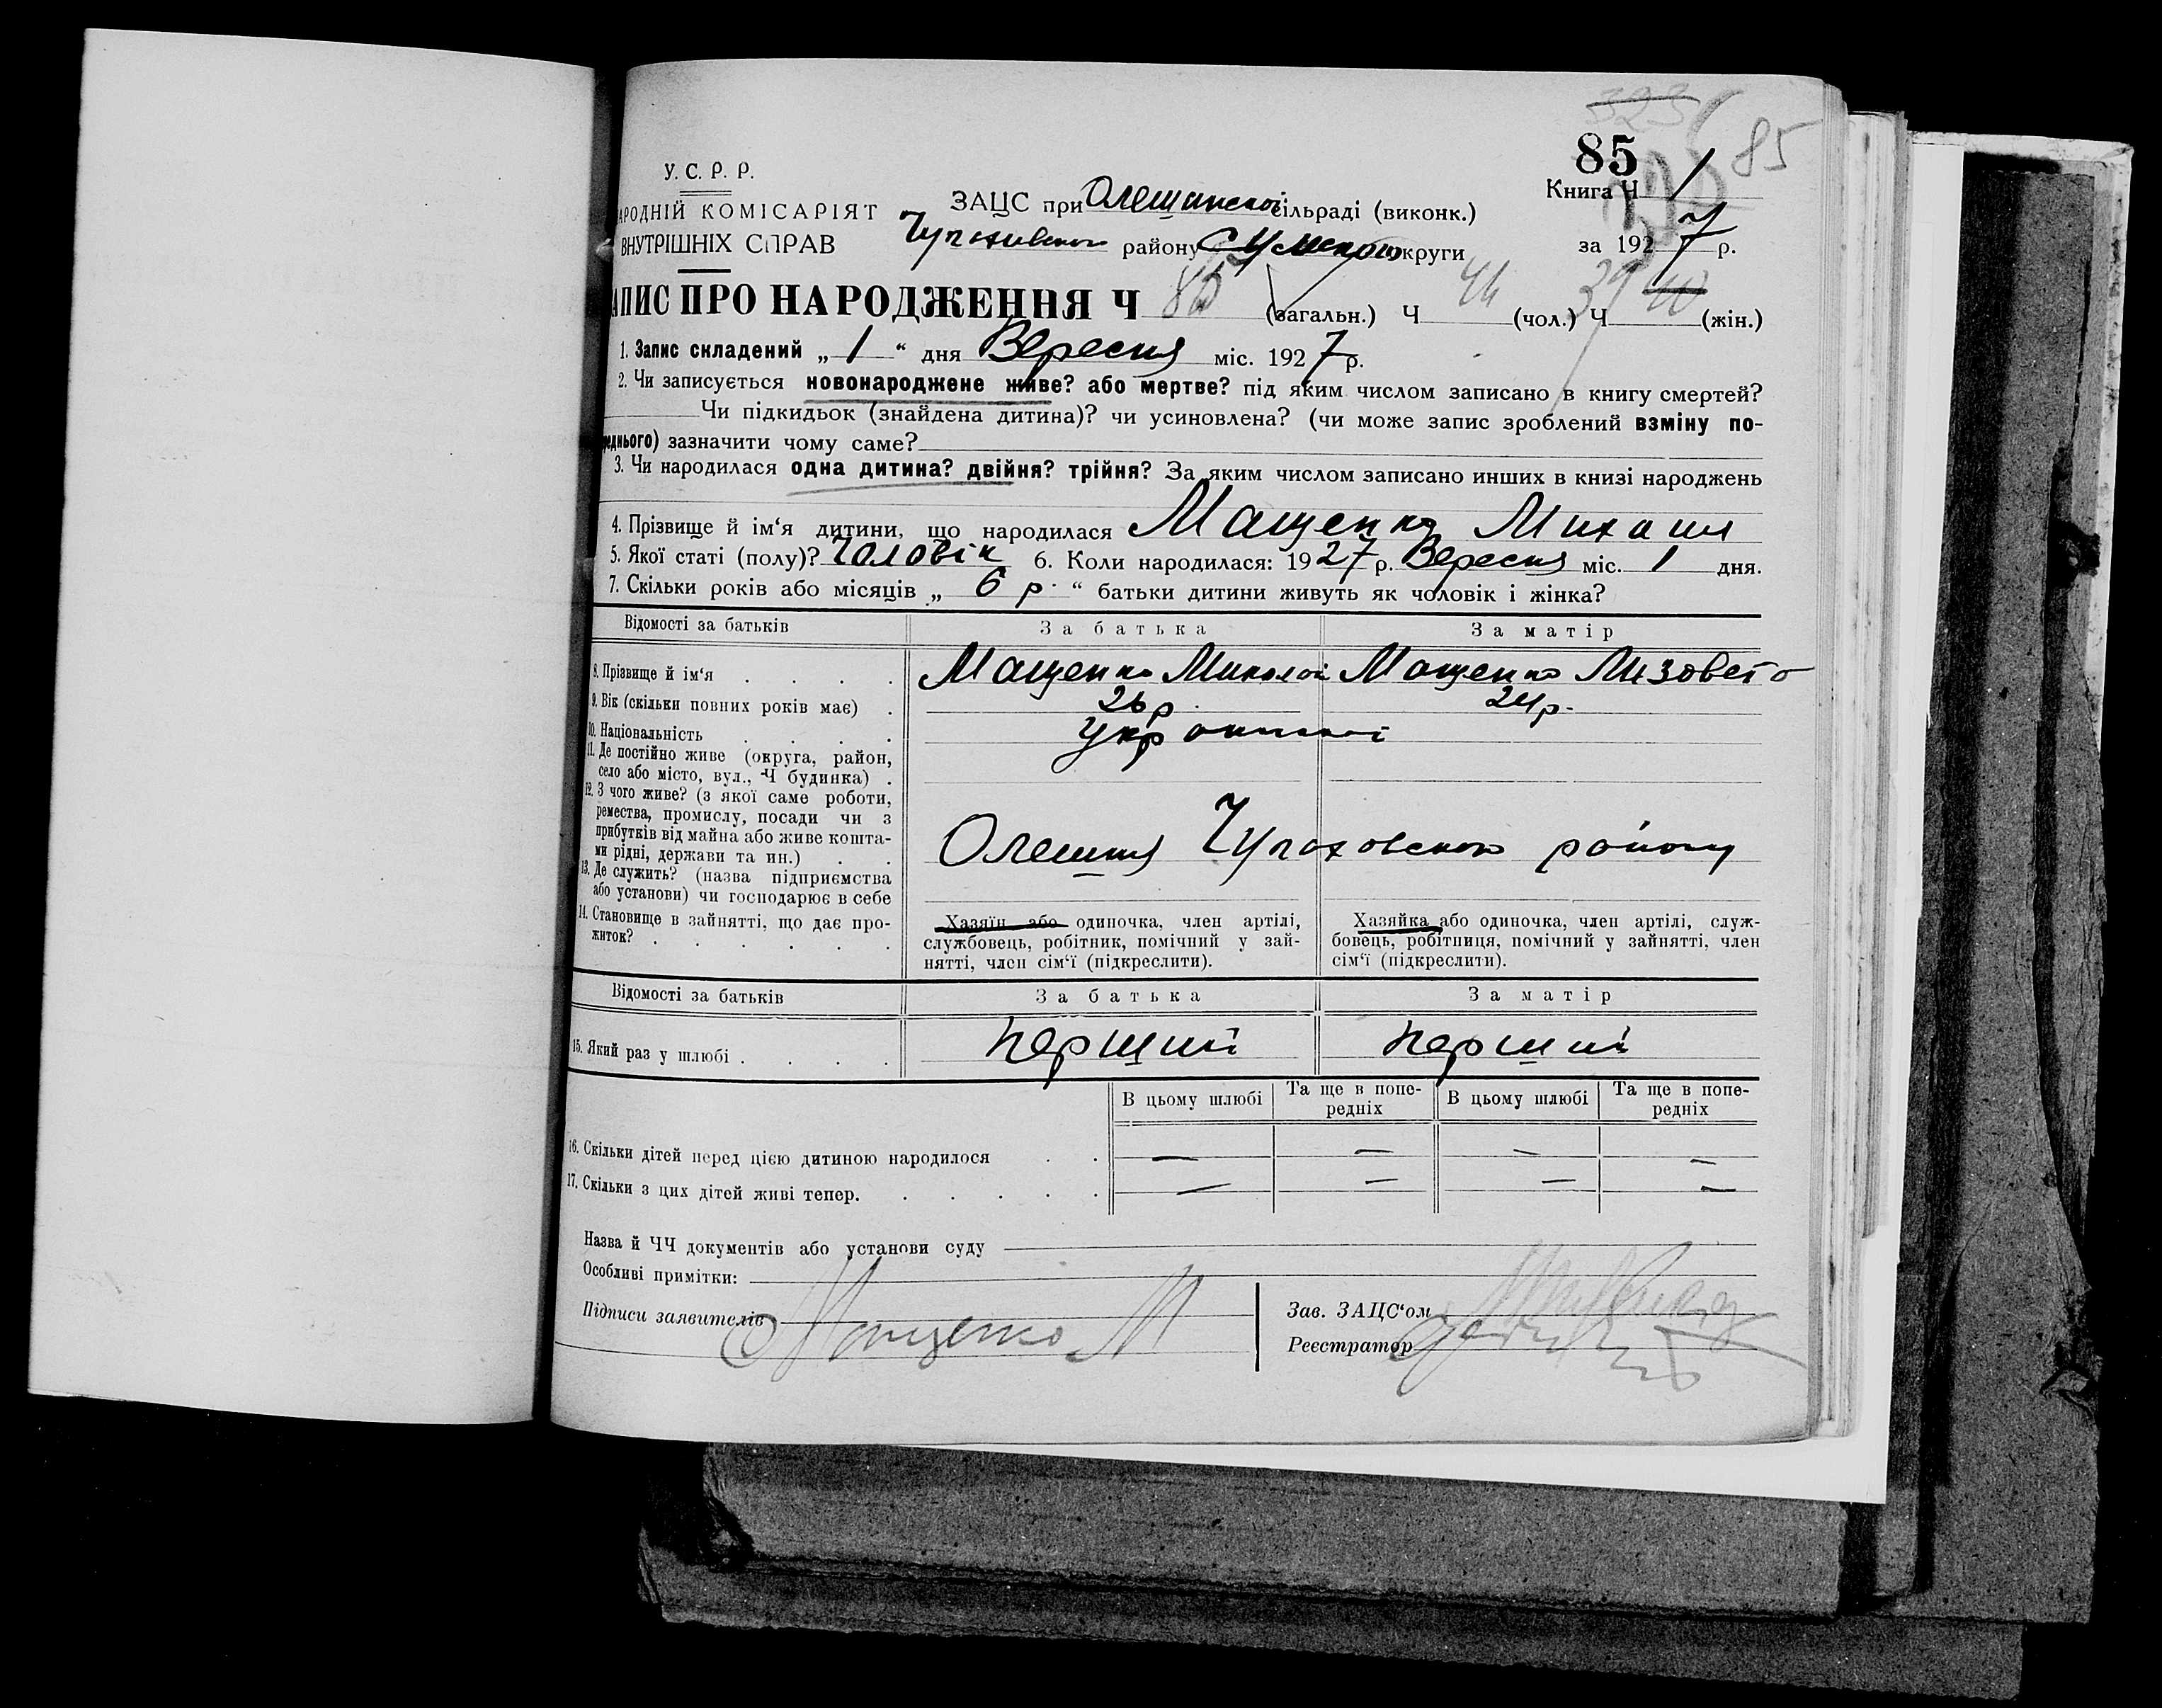 85
85
У. С. Р. Р.
Книга Ч 1
АРОДНІЙ КОМІСАРІЯТ
ВНУТРІШНІХ СПРАВ
ЗАЦС при Олешинской сільраді (виконк.)
Чупаховского району Сумской округи
за 1927 р.
АПИС ПРО НАРОДЖЕННЯ Ч 85 (загальн.) Ч 44 (чол.) Ч (жін.)
1. Запис складений „ 1 “ дня Вересня міс. 1927 р.
2. Чи записується новонароджене живе? або мертве? під яким числом записано в книгу смертей?
Чи підкидьок (знайдена дитина)? чи усиновлена? (чи може запис зроблений взміну по-
реднього) зазначити чому саме?
3. Чи народилася одна дитина? двійня? трійня? За яким числом записано инших в книзі народжень
4. Прізвище й ім‘я дитини, що народилася Мащенко Михаил
5. Якої статі (полу)? Чоловік 6. Коли народилася: 1927 р. Вересня міс. 1 дня.
7. Скільки років або місяців „ 6 р. “ батьки дитини живуть як чоловік і жінка?
Відомості за батьків За батька За матір
8. Прізвище й ім‘я Мащенко Миколай Мащенко Лизовета
9. Вік (скільки повних років має) 26 р. 24 р.
10. Національність
11. Де постійно живе (округа, район,
село або місто, вул., Ч будинка)
12. З чого живе? (з якої саме роботи,
ремества, промислу, посади чи з
прибутків від майна або живе кошта-
ми рідні, держави та ин.)
Олешня Чупаховского району
13. Де служить? (назва підприємства
або установи) чи господарює в себе
14. Становище в зайнятті, що дає про-
житок?
Хазяїн або одиночка, член артілі,
службовець, робітник, помічний у зай-
нятті, член сім‘ї (підкреслити).
Хазяйка або одиночка, член артілі, служ-
бовець, робітниця, помічний у зайнятті, член
сім‘ї (підкреслити).
Відомості за батьків За батька За матір
15. Який раз у шлюбі Перший Перший
В цьому шлюбі Та ще в попе-
редніх В цьому шлюбі Та ще в попе-
редніх
16. Скільки дітей перед цією дитиною народилося — — — —
17. Скільки з цих дітей живі тепер. — — — —
Назва й ЧЧ документів або установи суду
Особливі примітки:
Підписи заявителів Мащенко М
Зав. ЗАЦС‘ом
Реєстратор